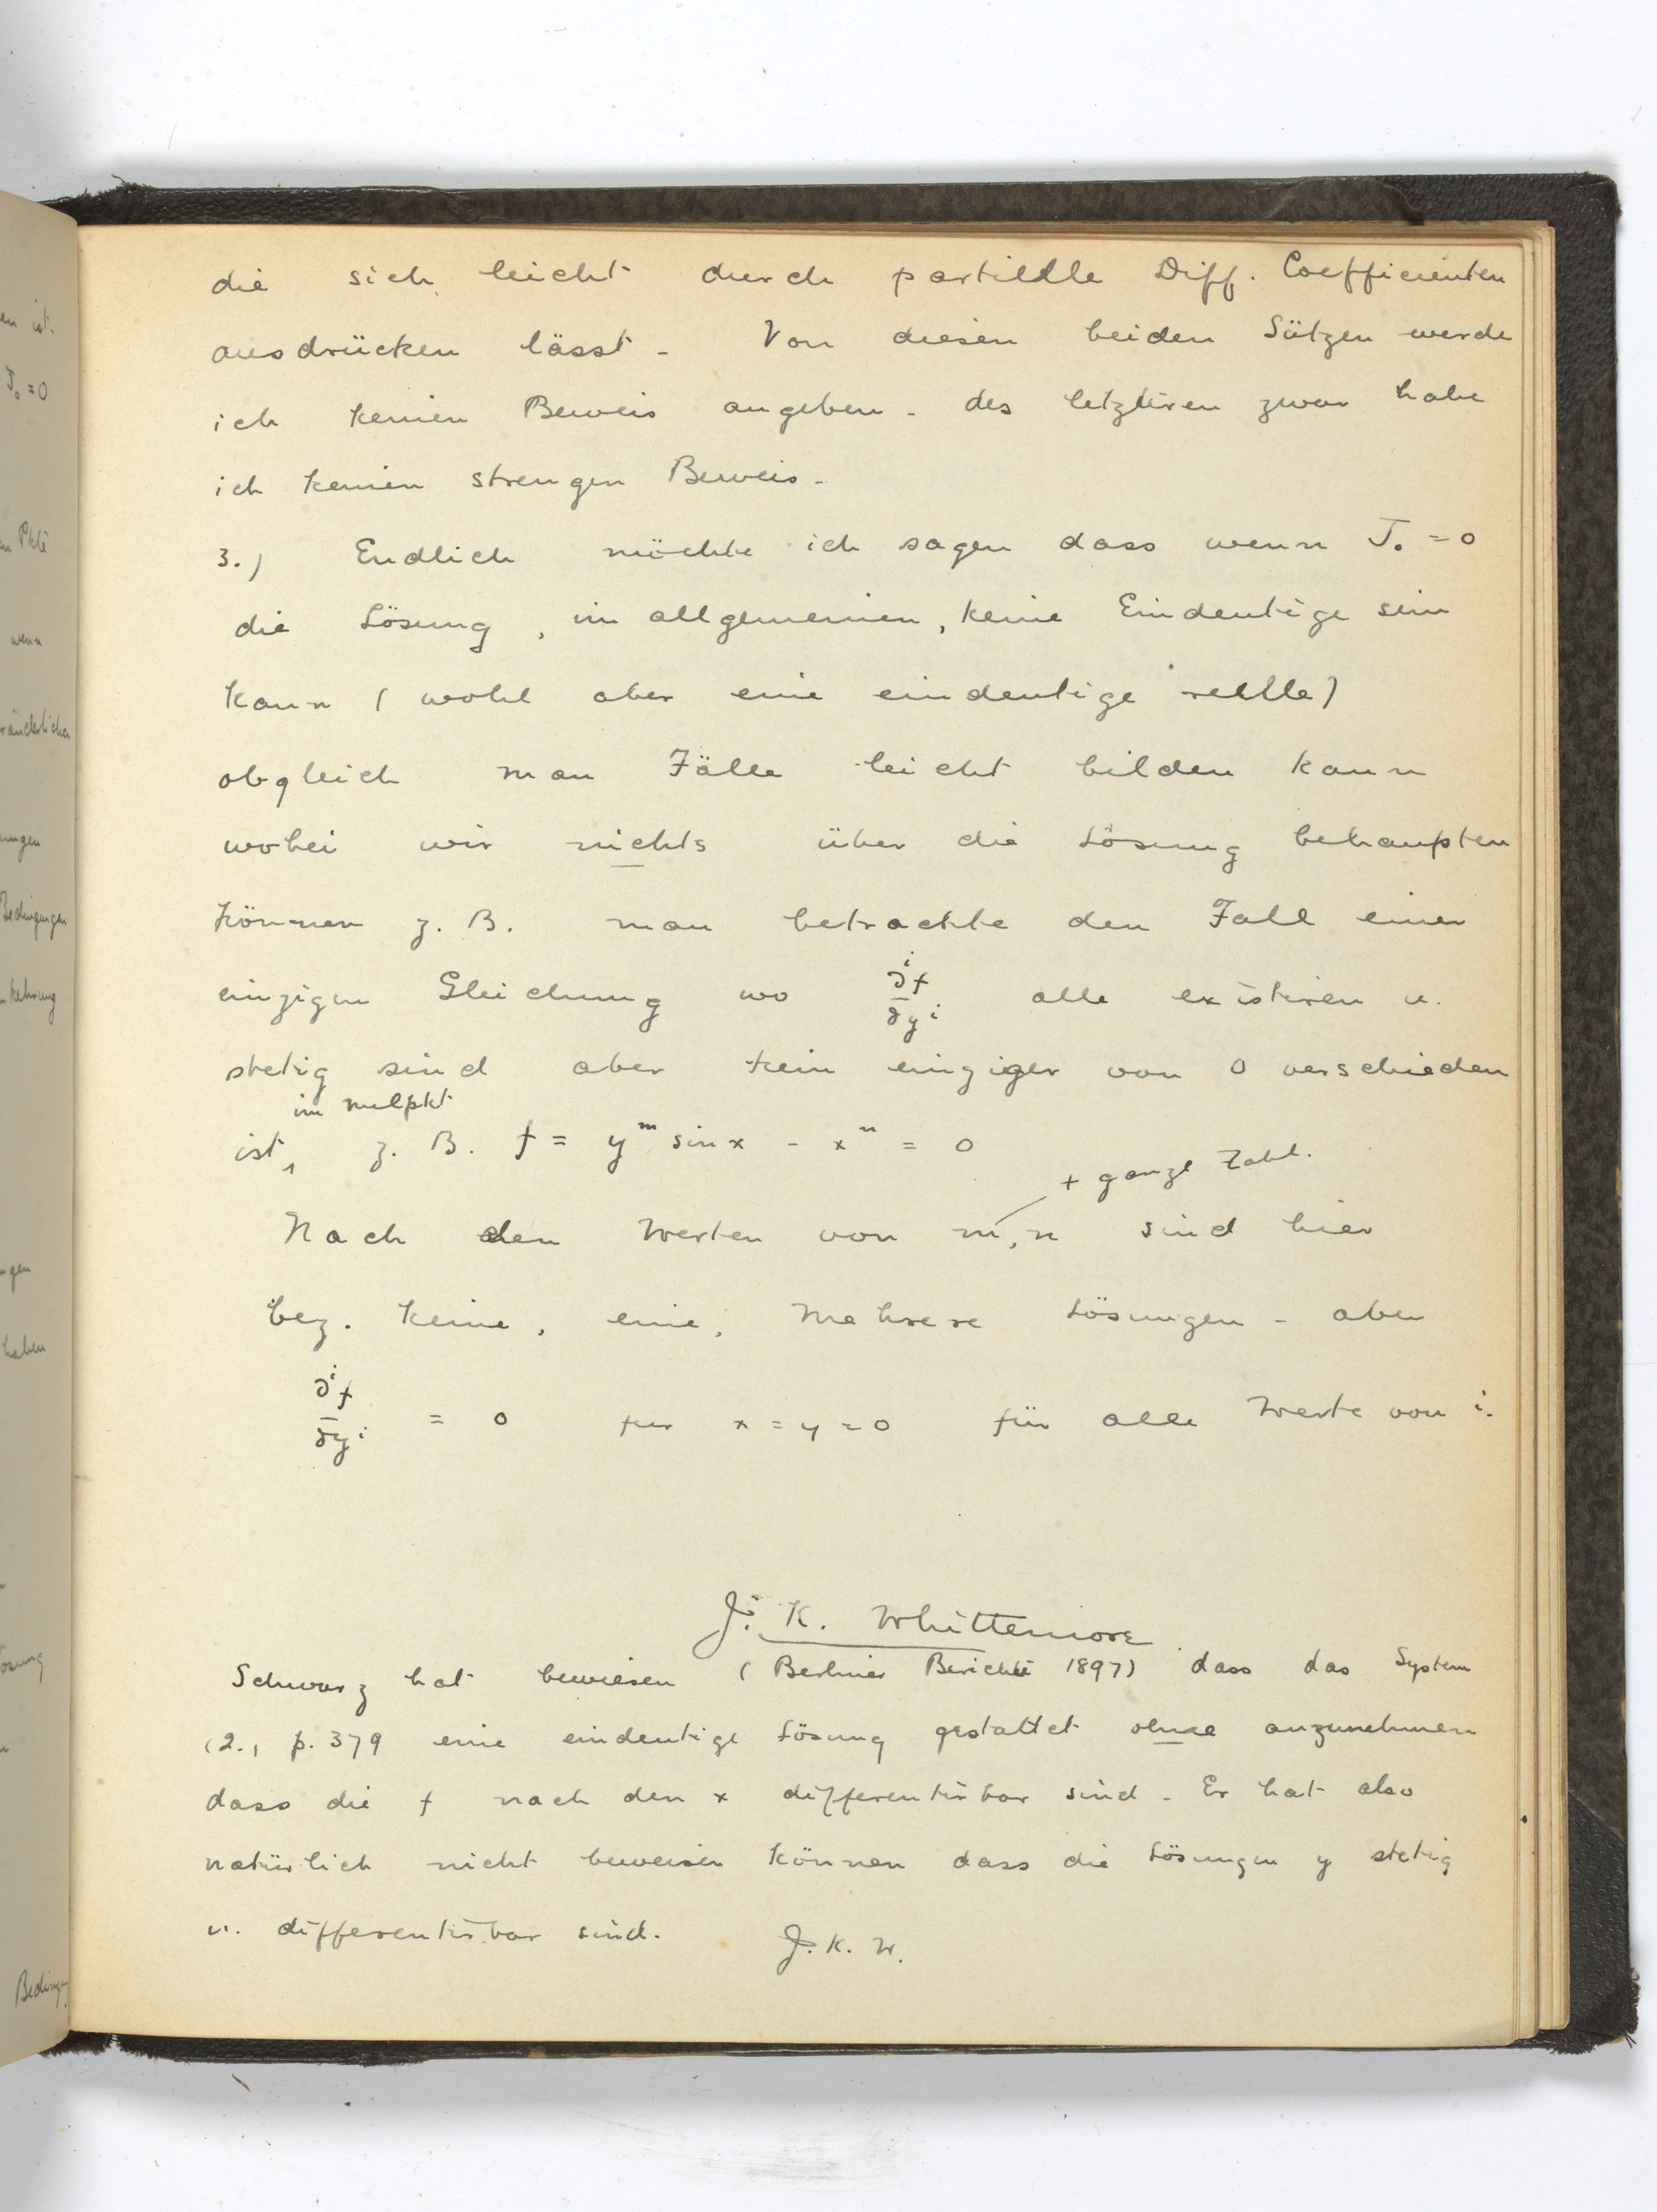 die sich leicht durch partielle Diff. Coefficienten
ausdrücken lässt - Von diesen beiden Sätzen werde
ich keinen Beweis angeben - des letzteren zwar habe
ich keinen strengen Beweis -
3.) Endlich möchte ich sagen dass wenn J₀ = 0
die Lösung, im allgemeinen, keine Eindeutige sein
kann (wohl aber eine eindeutige reelle)
obgleich man Fälle leicht bilden kann
wobei wir nichts über die Lösung behaupten
können z. B. man betrachte den Fall einer
einzigen Gleichung wo ∂ⁱf/∂yⁱ alle existiren u.
stetig sind aber kein einziger von 0 verschieden
im Nullpkt
ist, z. B. f = yᵐ sin x - xⁿ = 0
+ ganze Zahl.
Nach den Werten von m, n sind hier
bez. keine, eine, mehrere Lösungen - aber
∂ⁱf/∂yⁱ = 0 für x = y = 0 für alle Werte von i.
J. K. Whittemore
Schwarz hat bewiesen (Berliner Berichte 1897) dass das System
(2., p. 379 eine eindeutige Lösung gestattet ohne anzunehmen
dass die f nach den x differentirbar sind - Er hat also
natürlich nicht beweisen können dass die Lösungen y stetig
u. differentirbar sind. J. K. W.
en ist.
J₀ = 0
n Pkte
wenn
ränderlichen
ungen
Bedingungen
kehrung
gen
haben
ösung
Bedingung